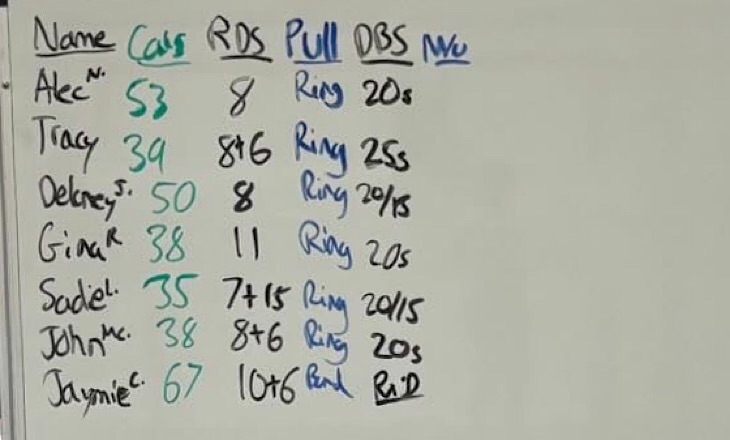 Name Cals RDS Pull DBS
Alec N. 53 8 Ring 20s
Tracy 39 8+6 Ring 25s
Delaney S. 50 8 Ring 20/15
Gina R 38 11 Ring 20s
Sadie L. 35 7+15 Ring 20/15
John Mc. 38 8+6 Ring 20s
Jaymie C. 67 10+6 Band RxD